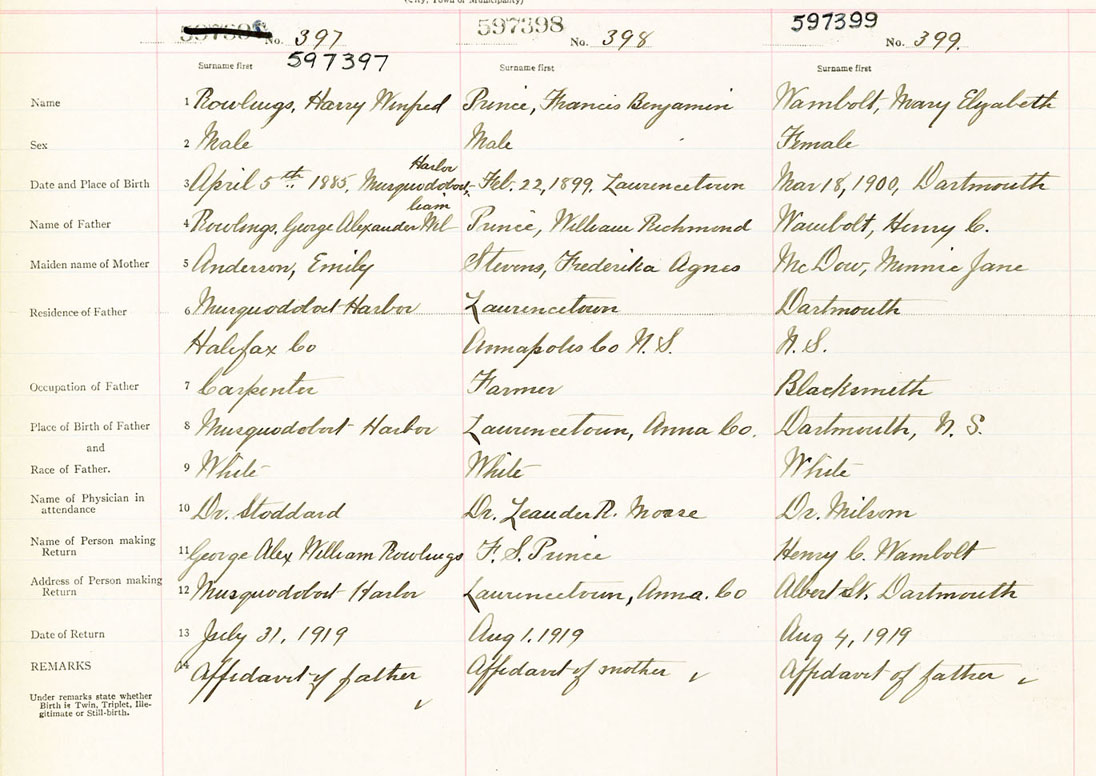 (City, Town or Municipality)
No. 397 597398 No. 398 597399 No. 399.
597397
Surname first Surname first Surname first
Name 1 Rowlings, Harry Winfred Prince, Francis Benjamin Wambolt, Mary Elizabeth
Sex 2 Male Male Female
Harbor
Date and Place of Birth 3 April 5th 1885, Musquodoboit Feb. 22, 1899, Laurencetown Mar 18, 1900, Dartmouth
liam
Name of Father 4 Rowlings, George Alexander Wil Prince, William Richmond Wambolt, Henry C.
Maiden name of Mother 5 Anderson, Emily Stevens, Frederika Agnes Mc Dow, Minnie Jane
Residence of Father 6 Musquodoboit Harbor Laurencetown Dartmouth
Halifax Co Annapolis Co N.S. N.S.
Occupation of Father 7 Carpenter Farmer Blacksmith
Place of Birth of Father 8 Musquodoboit Harbor Laurencetown, Anna Co. Dartmouth, N.S.
and
Race of Father. 9 White White White
Name of Physician in
attendance 10 Dr. Stoddard Dr. Leander R. Morse Dr. Milsom
Name of Person making
Return 11 George Alex William Rowlings F. S. Prince Henry C. Wambolt
Address of Person making
Return 12 Musquodoboit Harbor Laurencetown, Anna. Co Albert St. Dartmouth
Date of Return 13 July 31, 1919 Aug 1. 1919 Aug 4, 1919
REMARKS 14 Affidavit of father Affidavit of mother Affidavit of father
Under remarks state whether
Birth is Twin, Triplet, Ille-
gitimate or Still-birth.